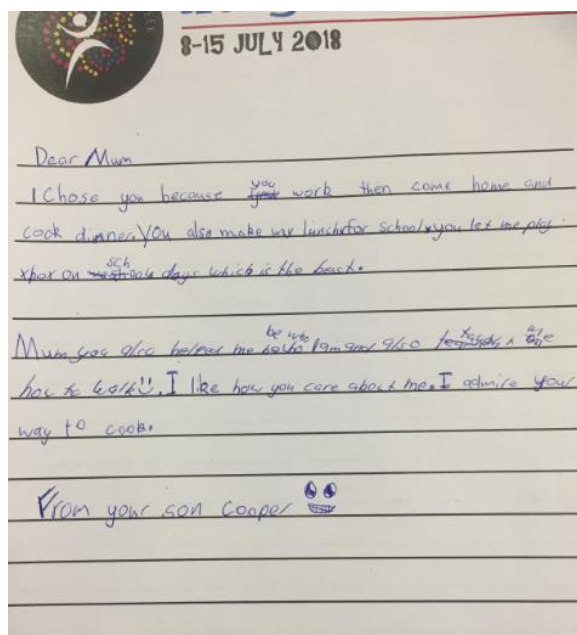 8-15 JULY 2018
Dear Mum
I Chose you because you work then come home and
cook dinner. You also make my lunch for school, you let me play
xbox on school days which is the best.
Mum you also helped me be who I am and also me
how to walk :). I like how you care about me. I admire your
way to cook.
From your son Cooper